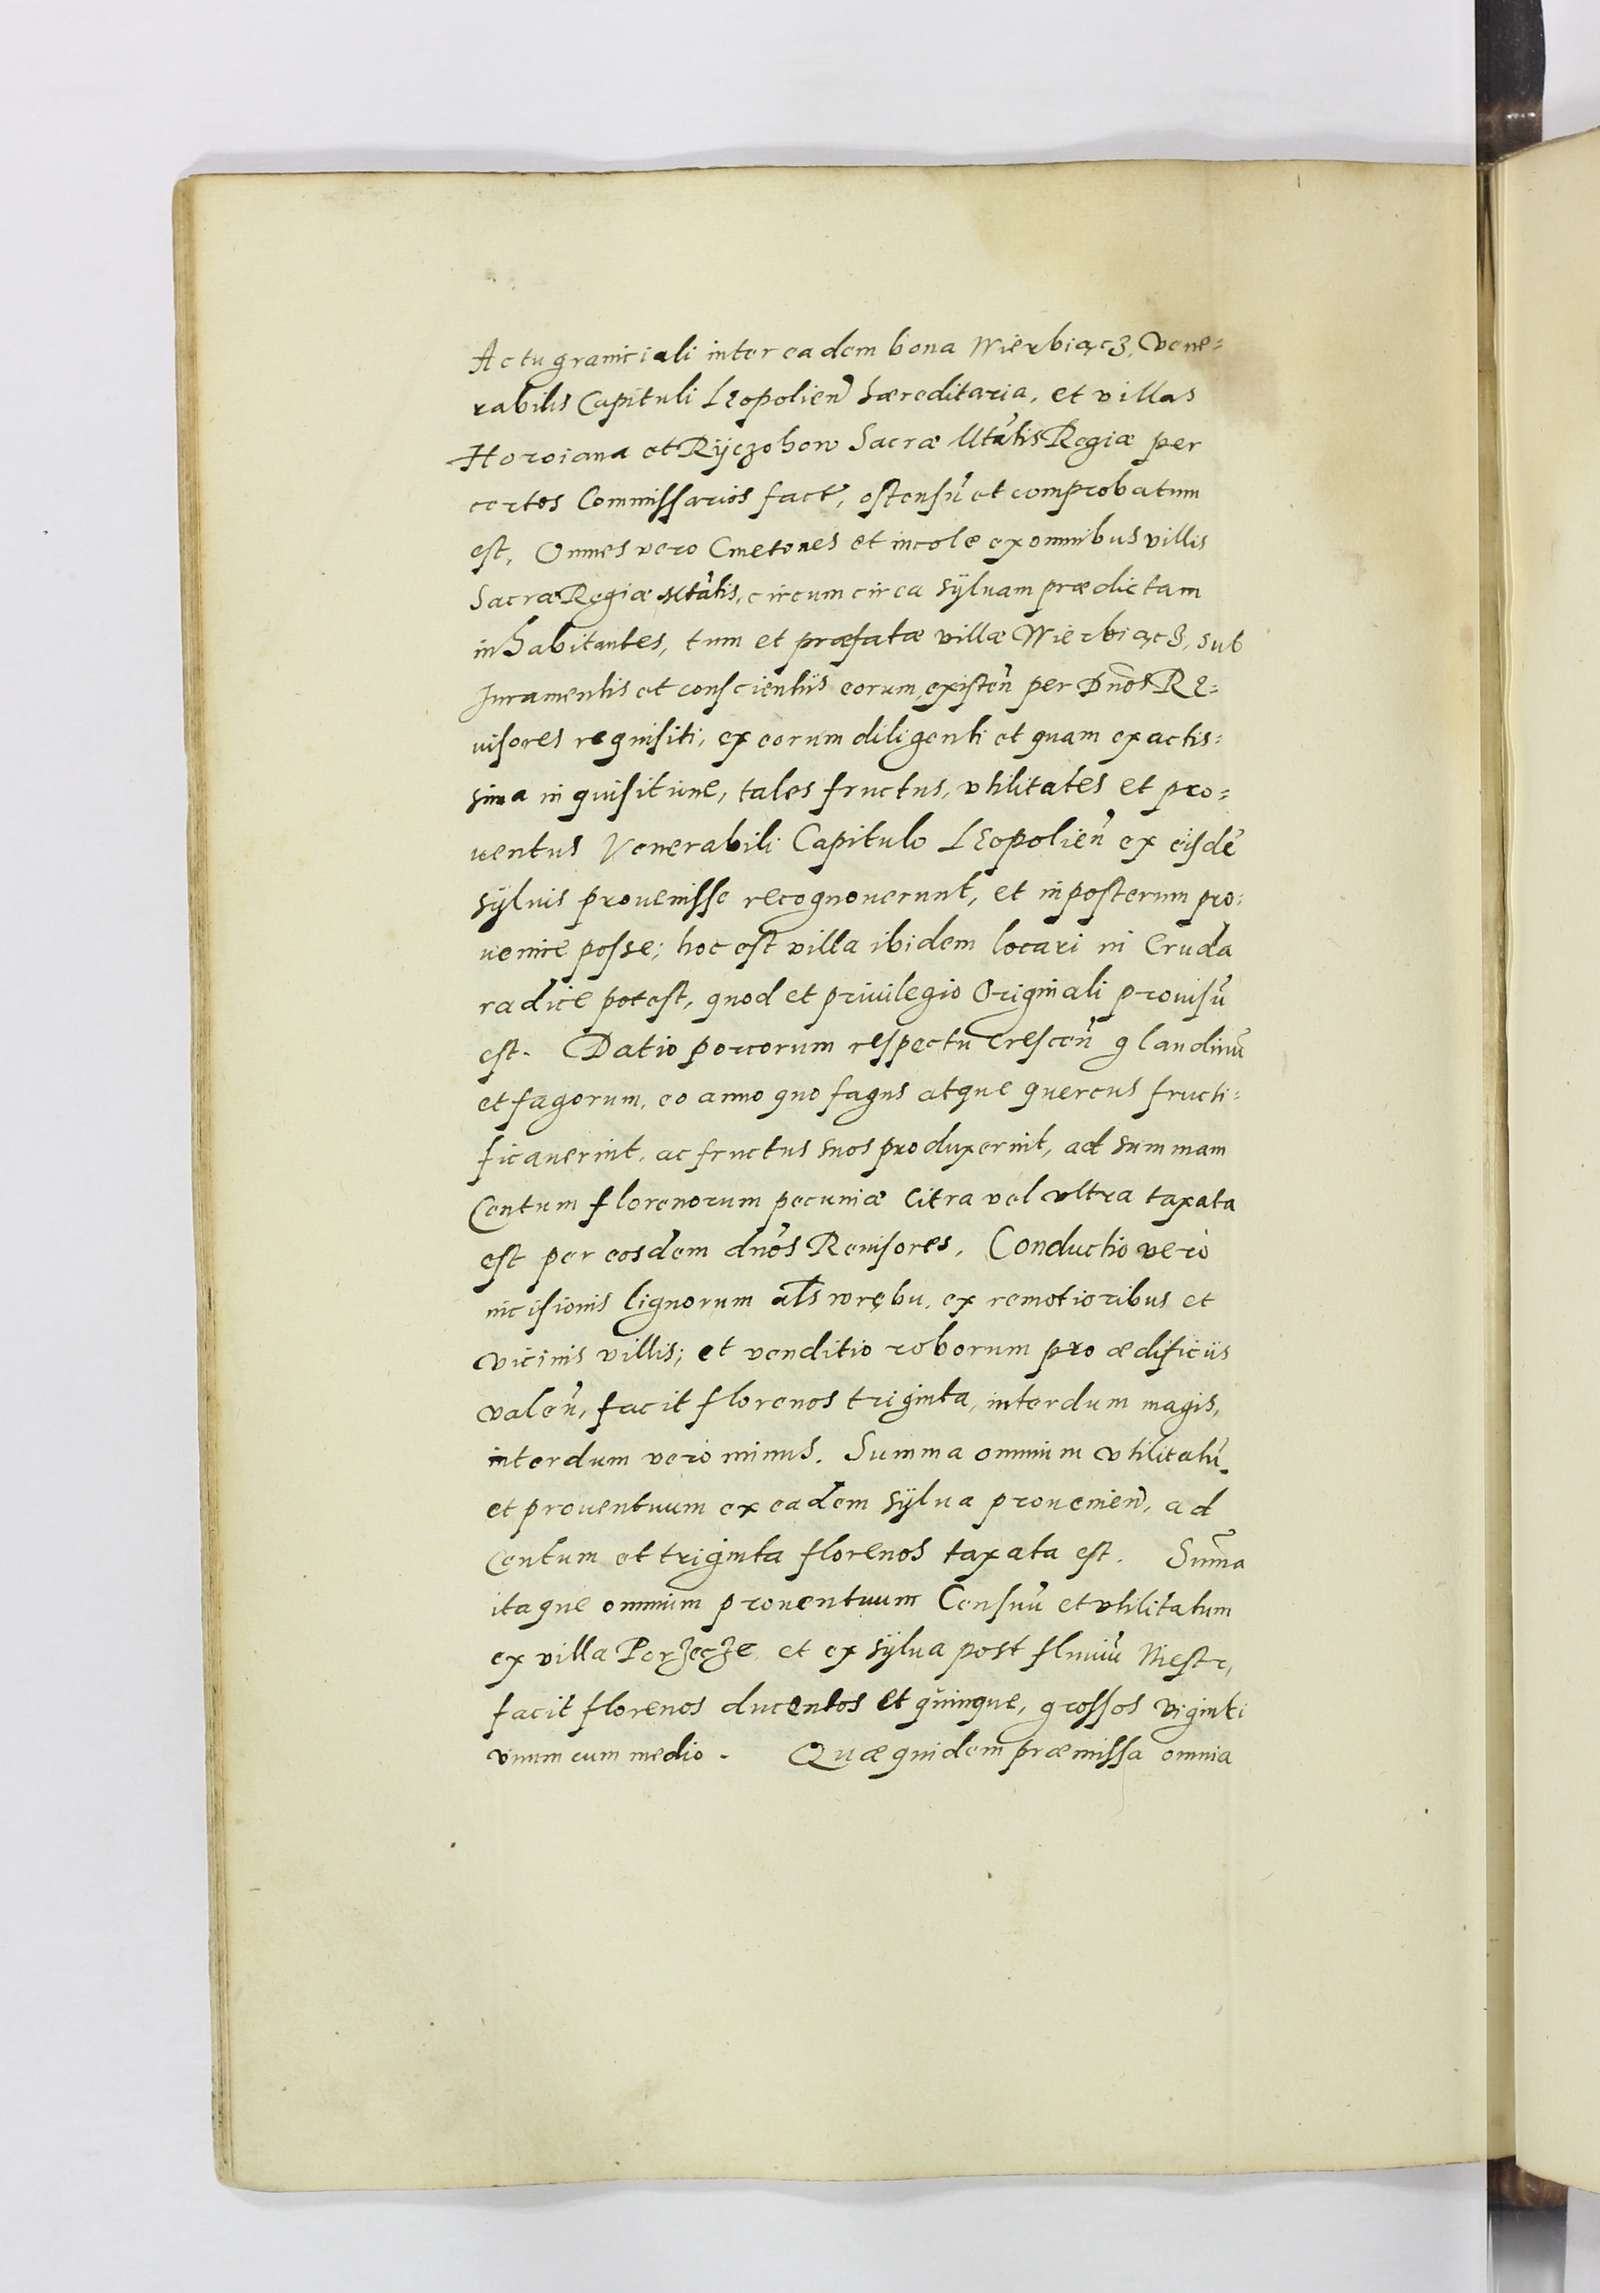 Actu graniciali inter eadem bona Wierbiącz, Vene=
rabilis Capituli Leopolien̄ hæreditaria, et villas
Horoiana et Rÿczohow Sacræ Mtãtis Regiæ per
certos Commissarios fact̃, ostensũ et comprobatum
est, Omnes vero Cmetones et incolæ ex omnibus villis
Sacræ Regiæ Mtãtis, circum circa sÿluam prædictam
inhabitantes, tum et præfatæ villæ Wierbiącz, sub
Juramentis et conscientiis eorum, existen̄ per Dnõs Re=
uisores requisiti, ex eorum diligenti et quam exactis=
sima inquisitione, tales fructus, vtilitates et pro=
uentus Venerabili Capitulo Leopolien̄ ex eisdẽ
sÿluis prouenisse recognouerunt, et in posterum pro=
uenire posse; hoc est villa ibidem locari in Cruda
radice potest, quod et priuilegio Originali prouisũ
est. Datio porcorum respectu crescen̄ glandinũ
et fagorum, eo anno quo fagus atque quercus fructi=
ficauerint, ac fructus suos produxerint, ad summam
Centum florenorum pecuniæ Citra vel vltra taxata
est per eosdem dnõs Reuisores. Conductio verò
incisionis lignorum als̃ wrębu, ex remotioribus et
vicinis villis; et venditio roborum pro ædificiis
valen̄, facit florenos triginta, interdum magis,
interdum vero minus. Summa omnium vtilitatũ
et prouentuum ex eadem sÿlua prouenien̄, ad
Centum et triginta florenos taxata est. Sum̃a
itaque omnium prouentuum Censuũ et vtilitatum
ex villa Porzecze, et ex sÿlua post fluuiũ Niestr,
facit florenos ducentos et quinque, grossos viginti
vnum cum medio. Quæ quidem præmissa omnia